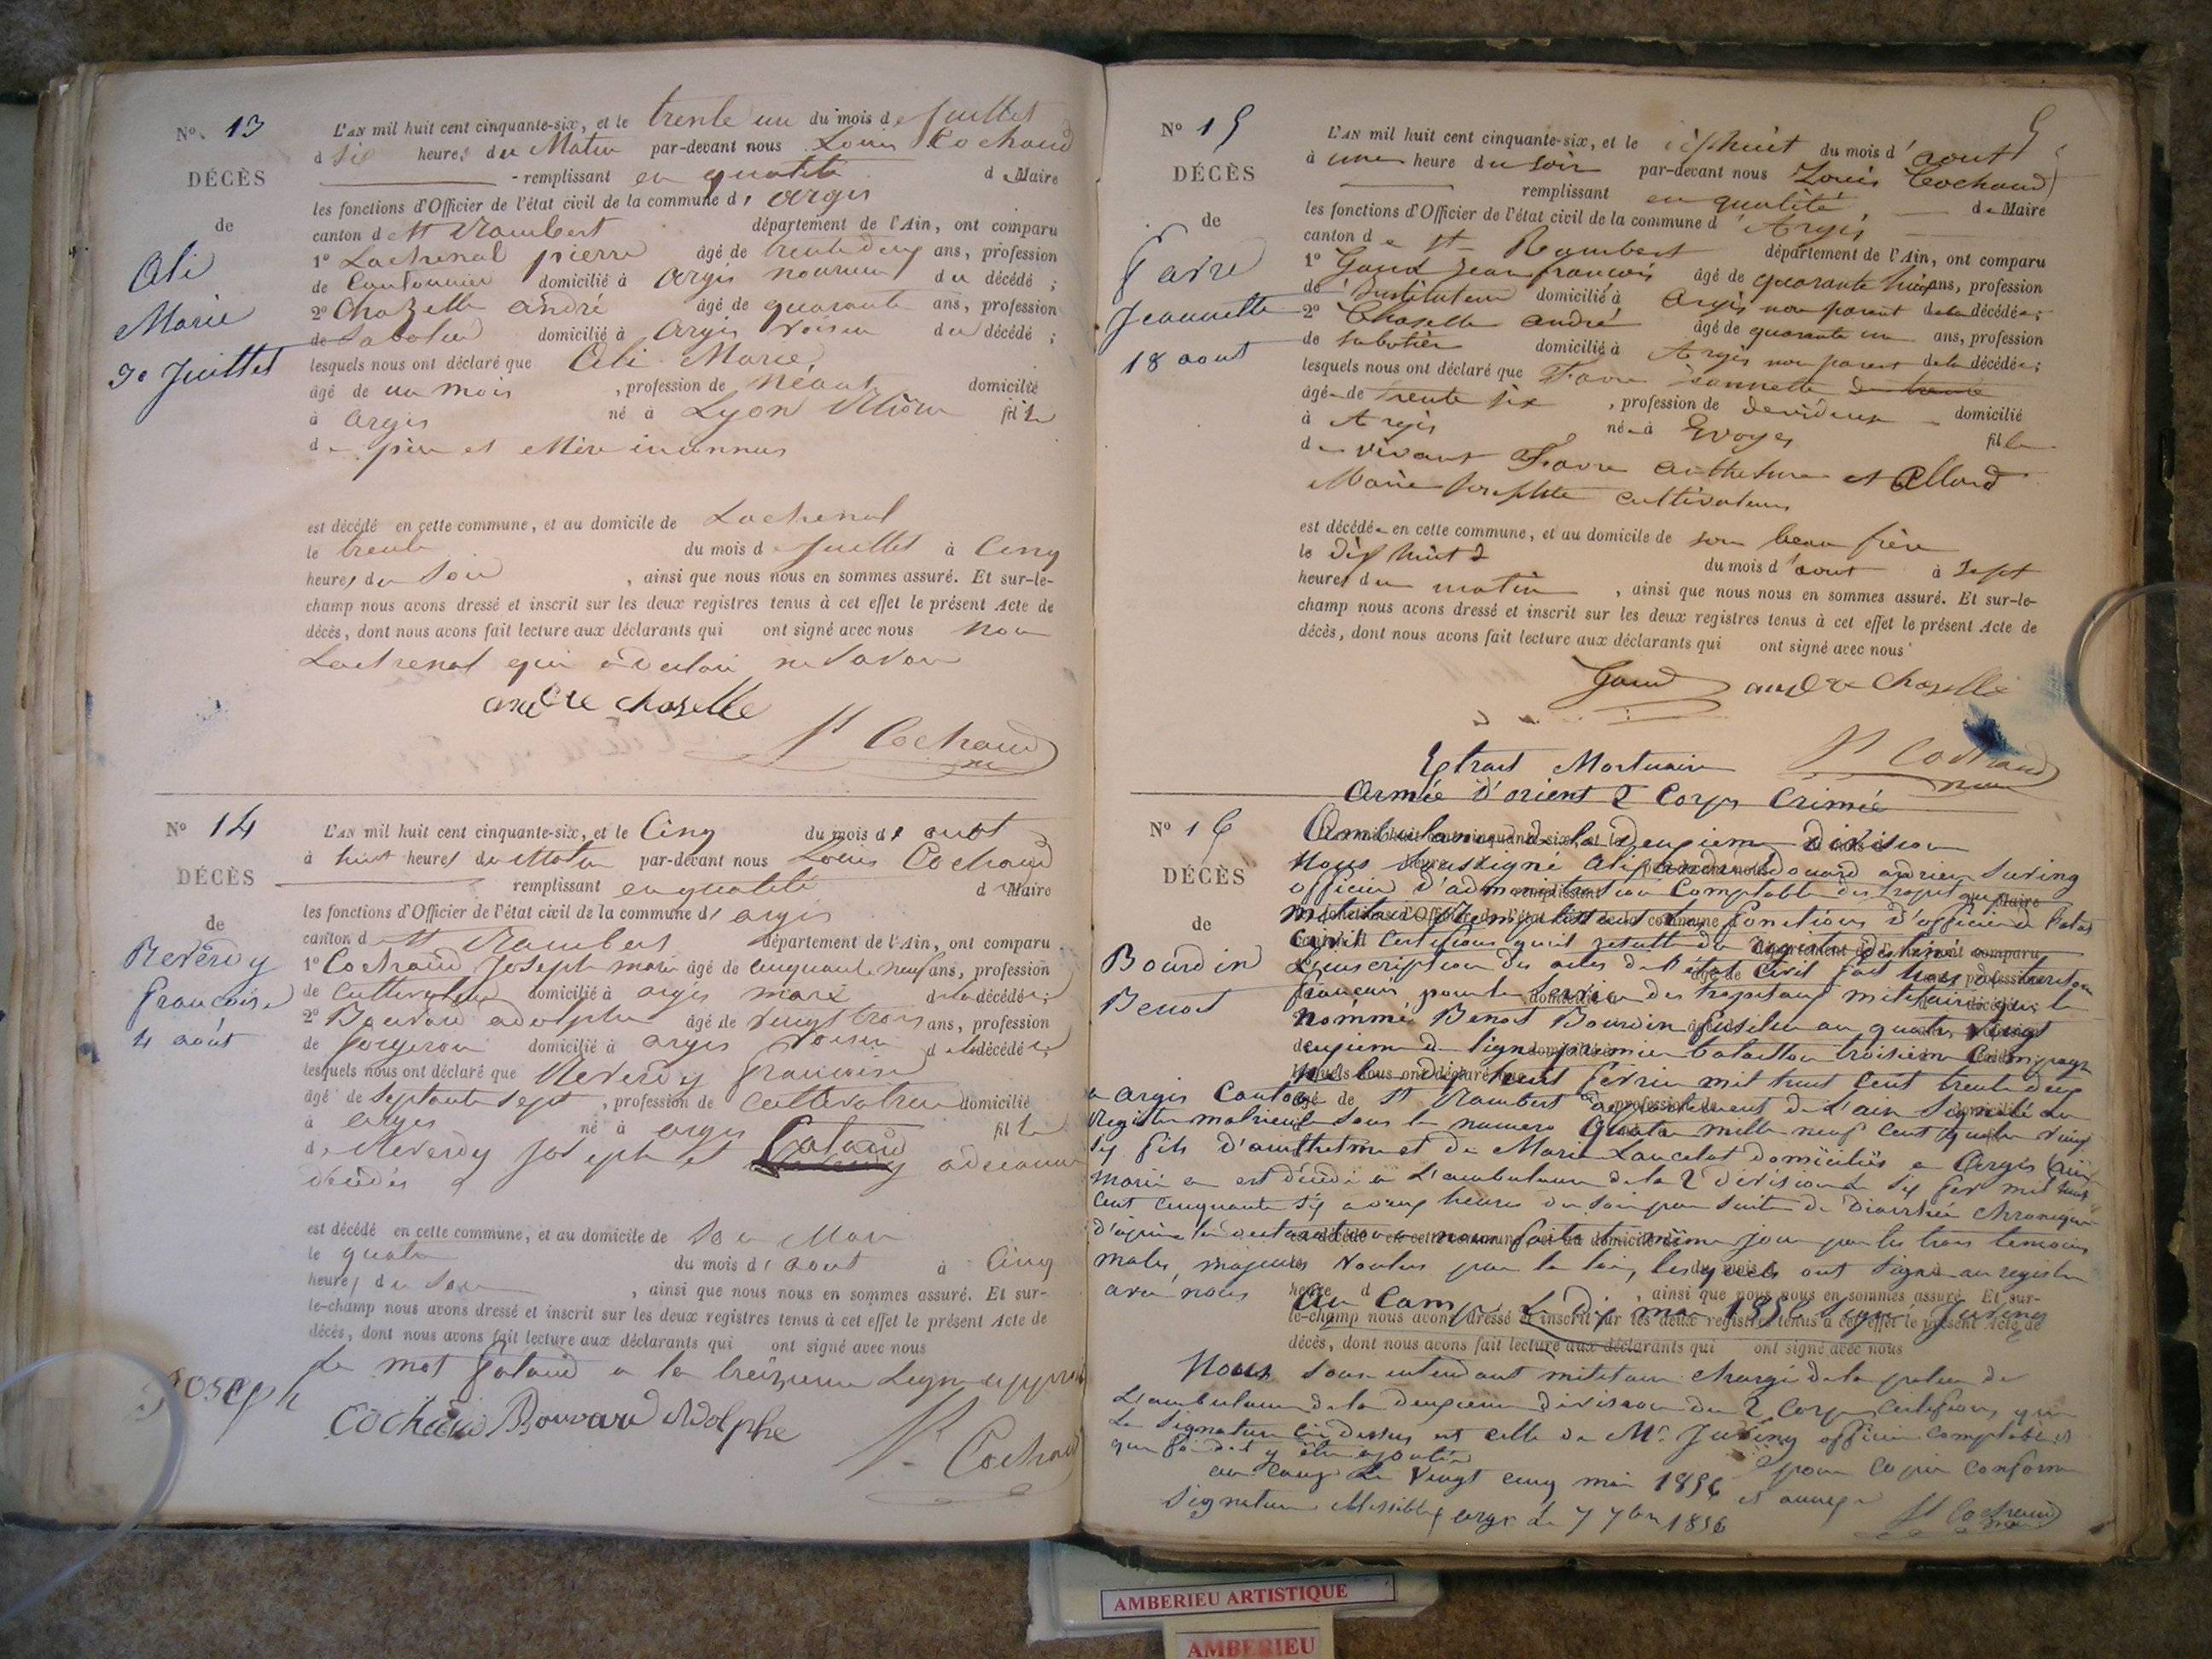 N° 13
DÉCÈS
de
Ali
Marie
30 Juillet
L'AN mil huit cent cinquante-six, et le trente un du mois de Juillet
à Six heures du Matin par-devant nous Louis Cochaud
remplissant en qualité de Maire
les fonctions d'Officier de l'état civil de la commune d'argis
canton de St Rambert département de l'Ain, ont comparu
1° Lachenal pierre âgé de trente deux ans, profession
de Cantonnier domicilié à Argis nourricier du décédé ;
2° Chazelle andré âgé de quarante ans, profession
de Sabotier domicilié à argis voisin du décédé ;
lesquels nous ont déclaré que Ali Marie
âgé de un mois , profession de Néant domicilié
à Argis né à Lyon Rhône fille
de père et Mère inconnus
est décédé en cette commune, et au domicile de Lachenal
le trente du mois de Juillet à Cinq
heures du Soir , ainsi que nous nous en sommes assuré. Et sur-le-
champ nous avons dressé et inscrit sur les deux registres tenus à cet effet le présent Acte de
décès, dont nous avons fait lecture aux déclarants qui ont signé avec nous non
Lachenal qui a déclaré ne Savoir
andre chaselle
Ls Cochaud
N° 14
DÉCÈS
de
Reverdy
francoise
4 août
L'AN mil huit cent cinquante-six, et le Cinq du mois d'aout
à huit heures du Matin par-devant nous Louis Cochaud
remplissant en qualité de Maire
les fonctions d'Officier de l'état civil de la commune d'argis
canton de St Rambert département de l'Ain, ont comparu
1° Cochaud Joseph marie âgé de cinquante neuf ans, profession
de Cultivateur domicilié à argis mari de la décédée ;
2° Bouvard adolphe âgé de vingt trois ans, profession
de forgeron domicilié à argis voisin de la décédée ;
lesquels nous ont déclaré que Reverdy francoise
âgé de Septante Sept , profession de Cultivatrice domicilié
à argis né à argis fille
de Reverdy Joseph et
décédés
est décédé en cette commune, et au domicile de Son Mari
le quatre du mois d'aout à Cinq
heures du Soir , ainsi que nous nous en sommes assuré. Et sur-
le-champ nous avons dressé et inscrit sur les deux registres tenus à cet effet le présent Acte de
décès, dont nous avons fait lecture aux déclarants qui ont signé avec nous
Le mot a la treizieme Ligne
Joseph
Cochaud Bouvard Adolphe
Ls Cochaud
N° 15
DÉCÈS
de
Favre
Jeannette
18 aout
5
L'AN mil huit cent cinquante-six, et le dixhuit du mois d'aout
à une heure du soir par-devant nous Louis Cochaud
remplissant en qualité de Maire
les fonctions d'Officier de l'état civil de la commune d'Argis
canton de St Rambert département de l'Ain, ont comparu
1° Jean françois âgé de quarante huit ans, profession
de Instituteur domicilié à Argis non parent de la décédée ;
2° Chaselle andré âgé de quarante un ans, profession
de sabotier domicilié à Argis non parent de la décédée ;
lesquels nous ont déclaré que Favre jeannette
âgée de trente six , profession de devideuse domicilié
à Argis née à Evoges fille
de vivant Favre anthelme et Allard
Marie cultivateurs
est décédée en cette commune, et au domicile de son beau frère
le dix huit du mois d'aout à Sept
heures du matin , ainsi que nous nous en sommes assuré. Et sur-le-
champ nous avons dressé et inscrit sur les deux registres tenus à cet effet le présent Acte de
décès, dont nous avons fait lecture aux déclarants qui ont signé avec nous
andre Chaselle
Ls Cochaud
N° 16
DÉCÈS
de
Bourdin
Benoit
Extrait Mortuaire
Armée d'orient 2 Corps Crimée
Ambulance de la Deuxieme division
Nous Soussigné Edouard adrien
officier d'administration Comptable des hopitaux
militaires Remplissant les fonctions d'officier de l'etat
Civil Certifions qu'il resulte du registre destiné a
L'inscription des actes de l'état Civil fait hors du territoire
francais pour le Service des hopitaux militaires que le
nommé Benoit Bourdin fusilier au quatre vingt
deuxieme de ligne premier bataillon troisieme Compagnie
Né le dix huit fevrier mil huit cent trente deux
a argis Canton de St Rambert departement de l'ain Signalé au
Registre matricule Sous le numero quatre mille neuf cent quatre vingt
Six fils d'anthelme et de Marie Lancelot domiciliés a Argis
est décédé a L'ambulance de la 2 division Le Six mil huit
cent cinquante Six a deux heures du Soir par Suite de Diarrhée Chronique
d'après la declaration a nous faite le même jour par les trois temoins
males, majeurs Voulus par la loi, lesquels ont Signé au registre
avec nous
Au Camp Le Dix mai 1856 Signé
Nous Sous intendant militaire chargé de la police de
L'ambulance de la deuxieme division du 2 Corps Certifions que
la Signature Ci dessus est celle de Mr officier Comptable et
que foi doit y être ajoutée
au Camp Le Vingt cinq mai 1856
pour Copie Conforme
Signature Illisible argis Le 7 7bre 1856
Ls Cochaud
AMBERIEU ARTISTIQUE
AMBERIEU